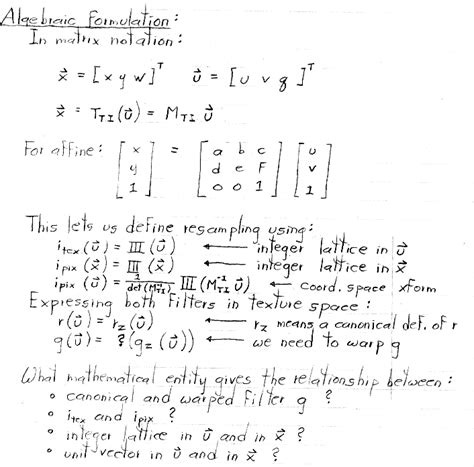 Algebraic Formulation:
In matrix notation:
x⃗ = [x y w]ᵀ u⃗ = [u v q]ᵀ
x⃗ = T_TI(u⃗) = M_TI u⃗
For affine: [x y 1] = [a b c; d e F; 0 0 1] [u v 1]
This lets us define resampling using:
i_tex(u⃗) = III(u⃗) ← integer lattice in u⃗
i_pix(x⃗) = III(x⃗) ← integer lattice in x⃗
i_pix(u⃗) = 1/det(M_TI⁻¹) III(M_TI⁻¹ u⃗) ← coord. space xform
Expressing both filters in texture space:
r(u⃗) = r_z(u⃗) ← r_z means a canonical def. of r
g(u⃗) = ?(g_z(u⃗)) ← we need to warp g
What mathematical entity gives the relationship between:
• canonical and warped filter g ?
• i_tex and i_pix ?
• integer lattice in u⃗ and in x⃗ ?
• unit vector in u⃗ and in x⃗ ?